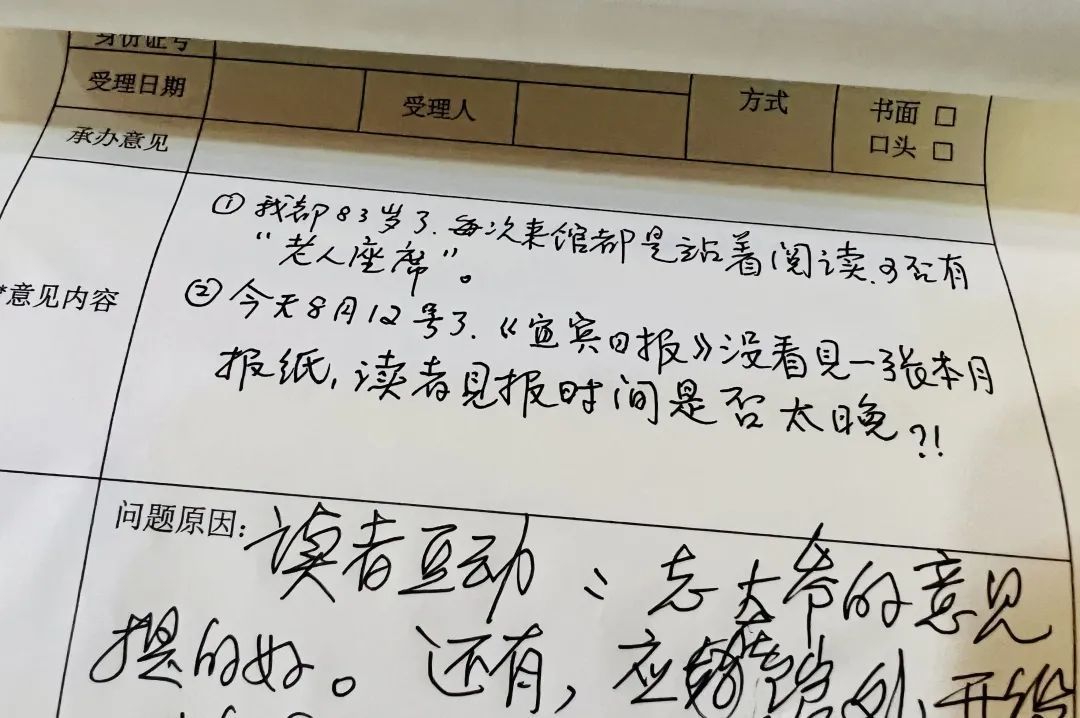 身份证号
受理日期 受理人 方式 书面 □
口头 □
承办意见
*意见内容
①我都83岁了.每次来馆都是站着阅读.可否有
“老人座席”。
②今天8月12号了.《宜宾日报》没看见一张本月
报纸,读者见报时间是否太晚?!
问题原因:读者互动:老大爷的意见
提的好。还有,应